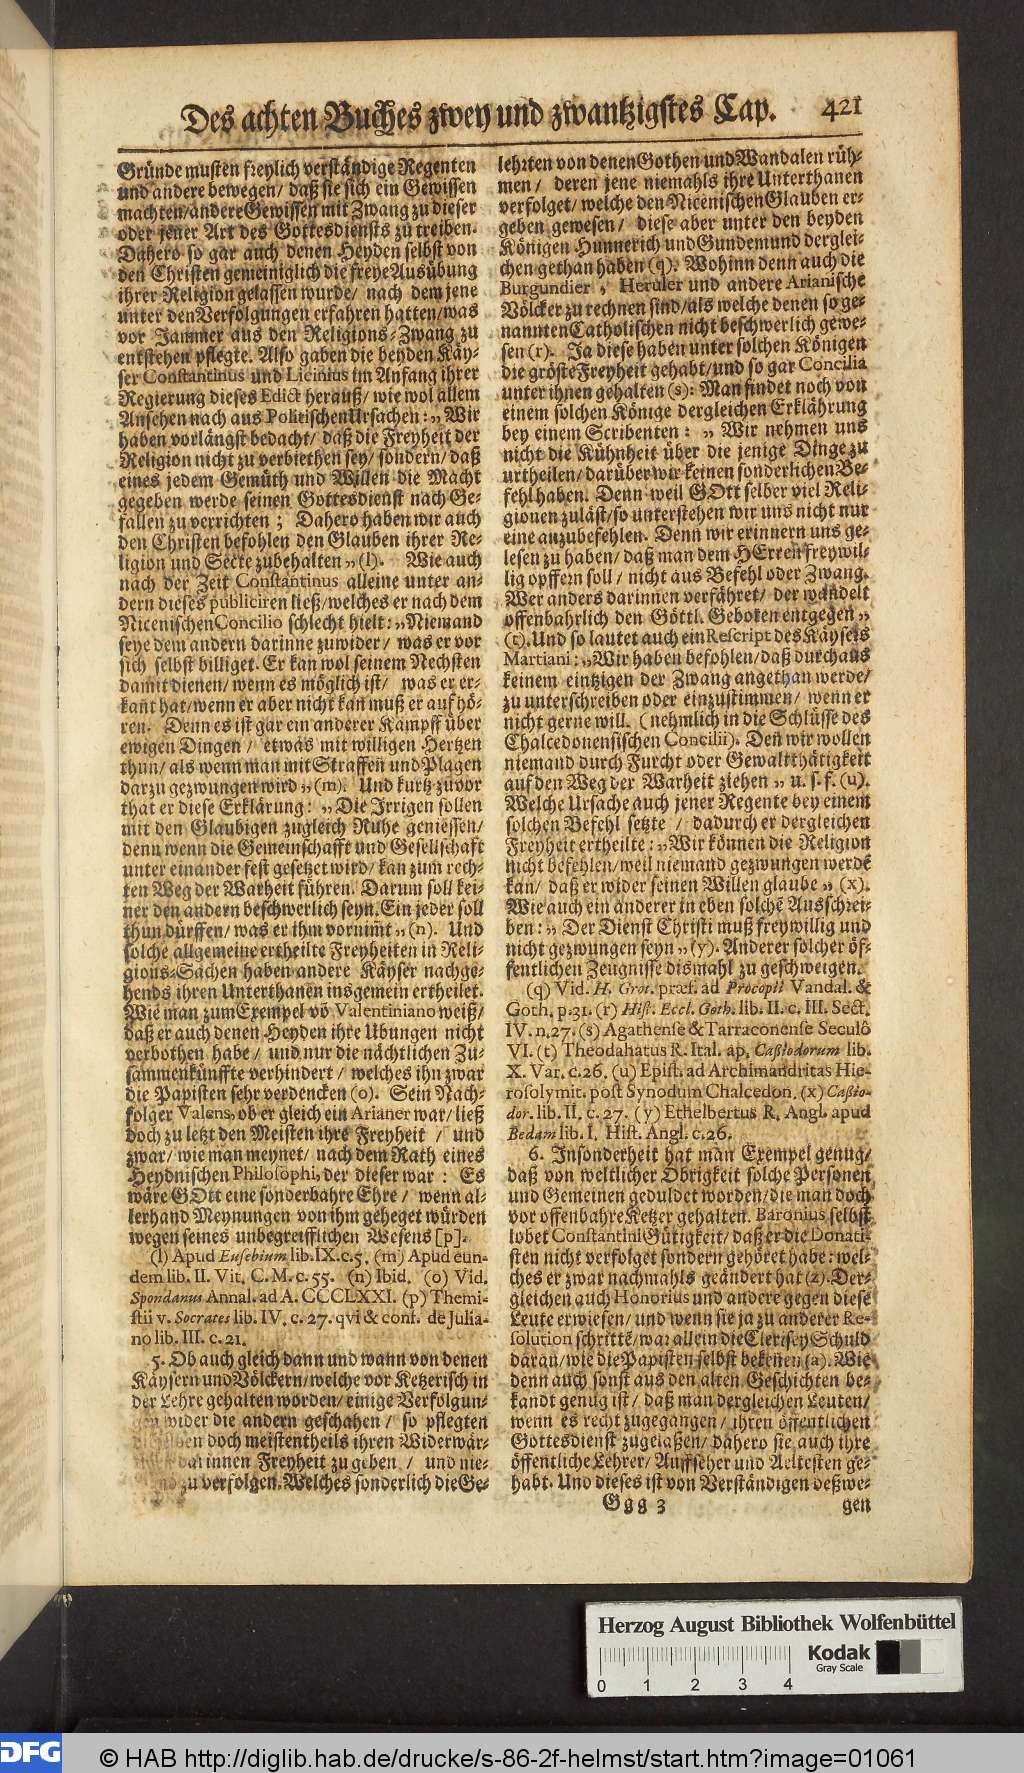 Des achten Buches zwey und zwantzigstes Cap. 421
Gründe musten freylich verständige Regenten
und andere bewegen/ daß sie sich ein Gewissen
machten/andere Gewissen mit Zwang zu dieser
oder jener Art des Gottesdiensts zu treiben.
Dahero so gar auch denen Heyden selbst von
den Christen gemeiniglich die freye Ausübung
ihrer Religion gelassen wurde/ nach dem jene
unter den Verfolgungen erfahren hatten/was
vor Jammer aus den Religions-Zwang zu
entstehen pflegte. Also gaben die beyden Käy-
ser Constantinus und Licinius im Anfang ihrer
Regierung dieses Edict herauß/ wie wol allem
Ansehen nach aus Politischen Ursachen: „ Wir
haben vorlängst bedacht/ daß die Freyheit der
Religion nicht zu verbiethen sey/ sondern/ daß
eines jedem Gemüth und Willen die Macht
gegeben werde seinen Gottesdienst nach Ge-
fallen zu verrichten ; Dahero haben wir auch
den Christen befohlen den Glauben ihrer Re-
ligion und Secte zubehalten „ (l). Wie auch
nach der Zeit Constantinus alleine unter an-
dern dieses publiciren ließ/welches er nach dem
Nicenischen Concilio schlecht hielt: „Niemand
seye dem andern darinne zuwider/ was er vor
sich selbst billiget. Er kan wol seinem Nechsten
damit dienen/ wenn es möglich ist/ was er er-
kañt hat/wenn er aber nicht kan muß er aufhö-
ren. Denn es ist gar ein anderer Kampff über
ewigen Dingen / etwas mit willigen Hertzen
thun/ als wenn man mit Straffen und Plagen
darzu gezwungen wird „ (m). Und kurtz zuvor
that er diese Erklärung: „ Die Irrigen sollen
mit den Glaubigen zugleich Ruhe geniessen/
denn wenn die Gemeinschafft und Gesellschaft
unter einander fest gesetzet wird/ kan zum rech-
ten Weg der Warheit führen. Darum soll kei-
ner den andern beschwerlich seyn. Ein jeder soll
thun dürffen/ was er ihm vornimt „ (n). Und
solche allgemeine ertheilte Freyheiten in Reli-
gions-Sachen haben andere Käyser nachge-
hends ihren Unterthanen insgemein ertheilet.
Wie man zum Exempel võ Valentiniano weiß/
daß er auch denen Heyden ihre Ubungen nicht
verbothen habe / und nur die nächtlichen Zu-
sammenkünffte verhindert / welches ihn zwar
die Papisten sehr verdencken (o). Sein Nach-
folger Valens, ob er gleich ein Arianer war/ ließ
doch zu letzt den Meisten ihre Freyheit / und
zwar/ wie man meynet/ nach dem Rath eines
Heydnischen Philosophi, der dieser war : Es
wäre GOtt eine sonderbahre Ehre / wenn al-
lerhand Meynungen von ihm geheget würden
wegen seines unbegreifflichen Wesens [p].
(l) Apud Eusebium lib. IX. c. 5. (m) Apud eun-
dem lib. II. Vit. C. M. c. 55. (n) Ibid. (o) Vid.
Spondanus Annal. ad A. CCCLXXI. (p) Themi-
stii v. Socrates lib. IV. c. 27. qvi & conf. de Julia-
no lib. III. c. 21.
5. Ob auch gleich dann und wann von denen
Käysern und Völckern/ welche vor Ketzerisch in
der Lehre gehalten worden/ einige Verfolgun-
gen wider die andern geschahen/ so pflegten
doch meistentheils ihren Widerwär-
darinnen Freyheit zu geben / und nie-
zu verfolgen. Welches sonderlich die Ge-
lehrten von denen Gothen und Wandalen rüh-
men/ deren jene niemahls ihre Unterthanen
verfolget/ welche den Nicenischen Glauben er-
geben gewesen/ diese aber unter den beyden
Königen Hunnerich und Gundemund derglei-
chen gethan haben (q). Wohinn denn auch die
Burgundier, Heruler und andere Arianische
Völcker zu rechnen sind/ als welche denen so ge-
nannten Catholischen nicht beschwerlich gewe-
sen (r). Ja diese haben unter solchen Königen
die gröste Freyheit gehabt/ und so gar Concilia
unter ihnen gehalten (s): Man findet noch von
einem solchen Könige dergleichen Erklährung
bey einem Scribenten: „ Wir nehmen uns
nicht die Kühnheit über die jenige Dinge zu
urtheilen/ darüber wir keinen sonderlichen Be-
fehl haben. Denn weil GOtt selber viel Reli-
gionen zuläst/ so unterstehen wir uns nicht nur
eine anzubefehlen. Denn wir erinnern uns ge-
lesen zu haben/ daß man dem HErren freywil-
lig opffern soll / nicht aus Befehl oder Zwang.
Wer anders darinnen verfähret/ der wandelt
offenbahrlich den Göttl. Geboten entgegen „
(t). Und so lautet auch ein Rescript des Käysers
Martiani: „Wir haben befohlen/ daß durchaus
keinem eintzigen der Zwang angethan werde/
zu unterschreiben oder einzustimmen/ wenn er
nicht gerne will. (nehmlich in die Schlüsse des
Chalcedonensischen Concilii). Deñ wir wollen
niemand durch Furcht oder Gewaltthätigkeit
auf den Weg der Warheit ziehen „ u. s. f. (u).
Welche Ursache auch jener Regente bey einem
solchen Befehl setzte / dadurch er dergleichen
Freyheit ertheilte: „Wir können die Religion
nicht befehlen/ weil niemand gezwungen werdẽ
kan/ daß er wider seinen Willen glaube „ (x).
Wie auch ein anderer in eben solchẽ Ausschrei-
ben: „ Der Dienst Christi muß freywillig und
nicht gezwungen seyn „ (y). Anderer solcher öf-
fentlichen Zeugnisse dismahl zu geschweigen.
(q) Vid. H. Grot. præf. ad Procopii Vandal. &
Goth. p. 31. (r) Hist. Eccl. Goth. lib. II. c. III. Sect.
IV. n. 27. (s) Agathense & Tarraconense Seculô
VI. (t) Theodahatus R. Ital. ap. Cassiodorum lib.
X. Var. c. 26. (u) Epist. ad Archimandritas Hie-
rosolymit. post Synodum Chalcedon. (x) Cassio-
dor. lib. II. c. 27. (y) Ethelbertus R. Angl. apud
Bedam lib. I. Hist. Angl. c. 26.
6. Insonderheit hat man Exempel genug/
daß von weltlicher Obrigkeit solche Personen
und Gemeinen geduldet worden/ die man doch
vor offenbahre Ketzer gehalten. Baronius selbst
lobet Constantini Gütigkeit/ daß er die Donati-
sten nicht verfolget sondern gehöret habe: wel-
ches er zwar nachmahls geändert hat (z). Der-
gleichen auch Honorius und andere gegen diese
Leute erwiesen/ und wenn sie ja zu anderer Re-
solution schrittẽ/ war allein die Clerisey Schuld
daran/ wie die Papisten selbst bekeñen (a). Wie
denn auch sonst aus den alten Geschichten be-
kandt genug ist/ daß man dergleichen Leuten/
wenn es recht zugegangen/ ihren öffentlichen
Gottesdienst zugelaßen/ dahero sie auch ihre
öffentliche Lehrer/ Auffseher und Aeltesten ge-
habt. Und dieses ist von Verständigen deßwe-
Ggg 3 gen
Herzog August Bibliothek Wolfenbüttel
Kodak
Gray Scale
0 1 2 3 4
DFG © HAB http://diglib.hab.de/drucke/s-86-2f-helmst/start.htm?image=01061